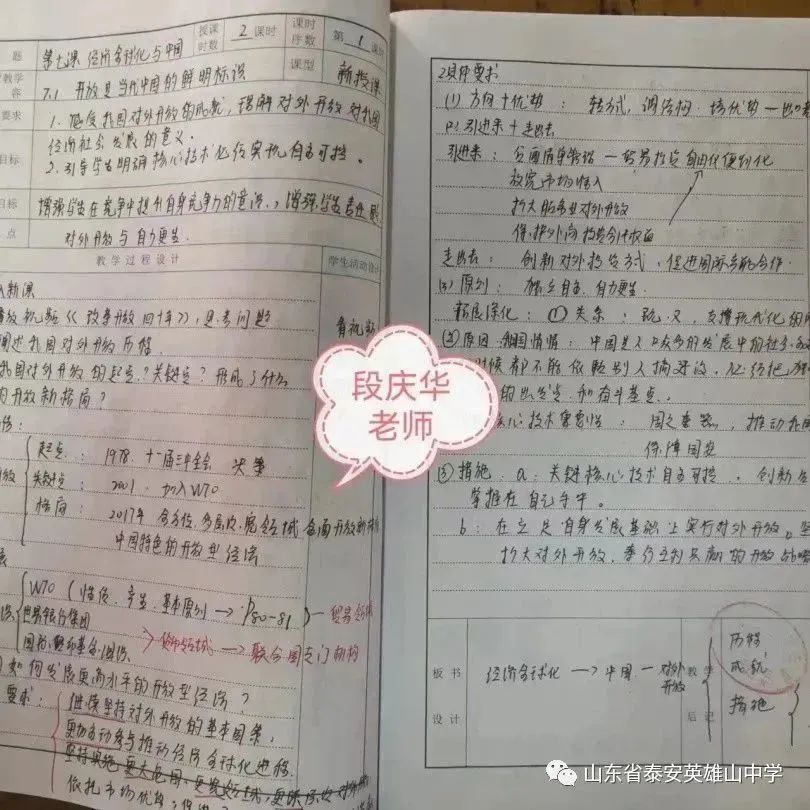 题 第七课 经济全球化与中国 授课时数 2 课时 课时序数 第 1 课时
7.1 开放是当代中国的鲜明标识 课型 新授课
要求 1. 感受我国对外开放的成就，理解对外开放对我国
经济社会发展的意义。
目标 2. 引导学生明确核心技术必须实现自主可控。
目标 增强学生在竞争中提升自身竞争力的意识，增强学生责任
点 对外开放与自力更生
教学过程设计 学生活动设计
入新课
播放视频《改革开放四十年》，思考问题 看视频
阐述我国对外开放历程
我国对外开放的起点？关键点？形成了什么
的开放新格局？
起点： 1978. 十一届三中全会 决策
关键点： 2001. 加入WTO
格局： 2017年 全方位、多层次、宽领域 全面开放新
中国特色的开放型经济
WTO （性质、产生、基本原则 → P80-81） — 贸易领域
世界银行集团
国际货币基金组织 → 联合国专门机构
如何发展更高水平的开放型经济？
要求： 继续坚持对外开放的基本国策，
更加主动参与推动经济全球化进程
依托市场优势，促进
2.具体要求
(1) 方向+优势： 转方式、调结构、培优势
(2) 引进来+走出去
引进来： 负面清单管理 — 贸易投资自由化便利化
放宽市场准入
扩大服务业对外开放
保护外商投资合法权益
走出去： 创新对外投资方式，促进国际产能合作
(3) 原则： 独立自主、自力更生
拓展深化： ① 关系：
② 原因： 国情： 中国是人口众多的发展中的社会主义
时候都不能依赖别人搞建设，必须把
的出发点和奋斗基点。
核心技术重要性： 国之重器，推动我国
保障国家
③ 措施： a：关键核心技术自主可控，创新
掌握在自己手中。
b：在立足自身发展基础上实行对外开放。坚
扩大对外开放，奉行互利共赢的开放战略
板书设计 经济全球化 → 中国 — 对外开放
教学后记 历程
成就
措施
段庆华
老师
山东省泰安英雄山中学